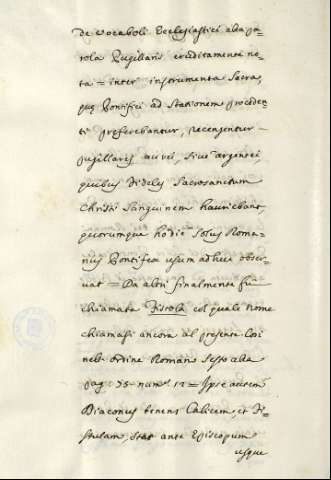 de vocaboli Ecclesiastici alla pa-
rola Pugillaris eruditamente no-
ta = inter instrumenta Sacra,
quæ Pontifici ad Stationem proceden
ti præferebantur, recensentur
pugillares aurei, sive argentei
quibus Fideles Sacrosanctum
Christi Sanguinem hauriebant,
quorumque hodie solus Roma-
nus Pontifex usum adhuc obser-
vat = Da altri finalmente fu
chiamata Fistola col quale nome
chiamasi ancora al presente Cosi
nell' Ordine Romano Sesto alla
pag: num° = Ipse autem
Diaconus tenens Calicem, et Fi-
stulam, stat ante Episcopum
usque